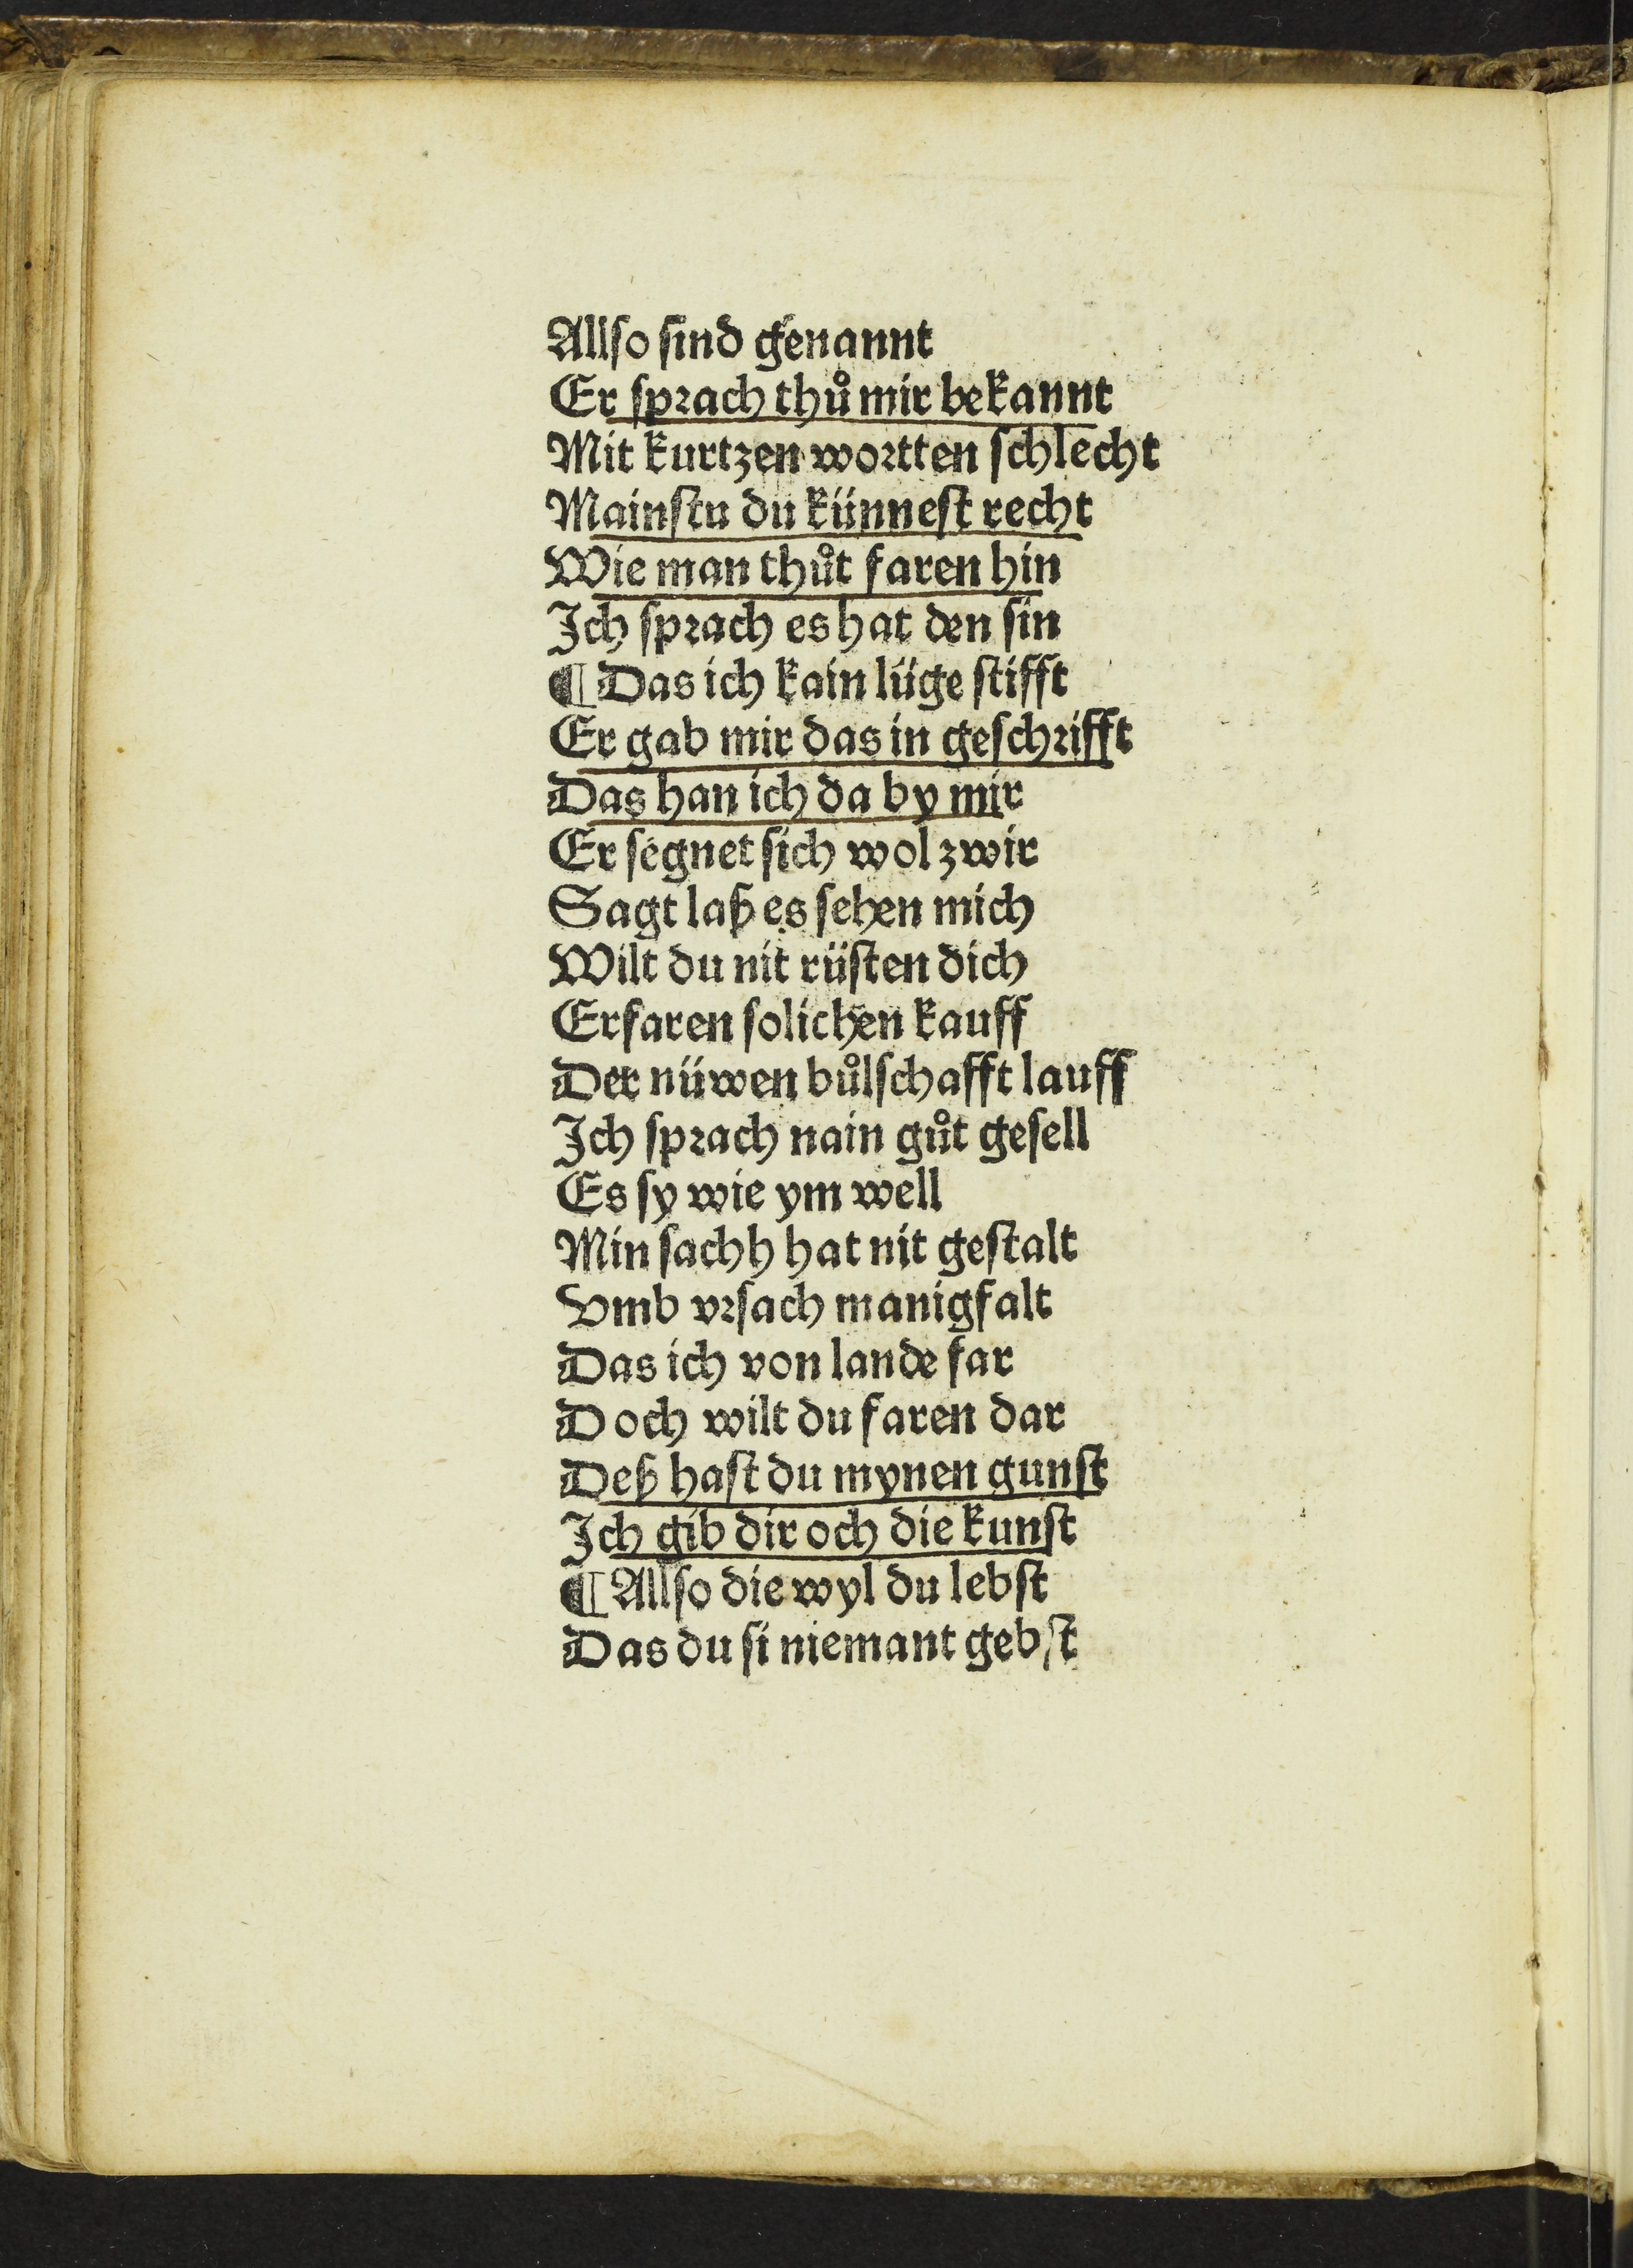 Allſo ſind genannt
Er ſprach thů mir bekannt
Mit kurtzen wortten ſchlecht
Mainſtu du künneſt recht
Wie man thůt faren hin
Ich ſprach es hat den ſin
¶ Das ich kain lüge ſtifft
Er gab mir das in geſchrifft
Das han ich da by mir
Er ſegnet ſich wol zwir
Sagt laß es ſehen mich
Wilt du nit rüſten dich
Erfaren ſolichen kauff
Der nüwen bůlſchafft lauff
Ich ſprach nain gůt geſell
Es ſy wie ym well
Min ſachh hat nit geſtalt
Vmb vrſach manigfalt
Das ich von lande far
Doch wilt du faren dar
Deß haſt du mynen gunſt
Ich gib dir och die kunſt
¶ Allſo die wyl du lebſt
Das du ſi niemant gebſt